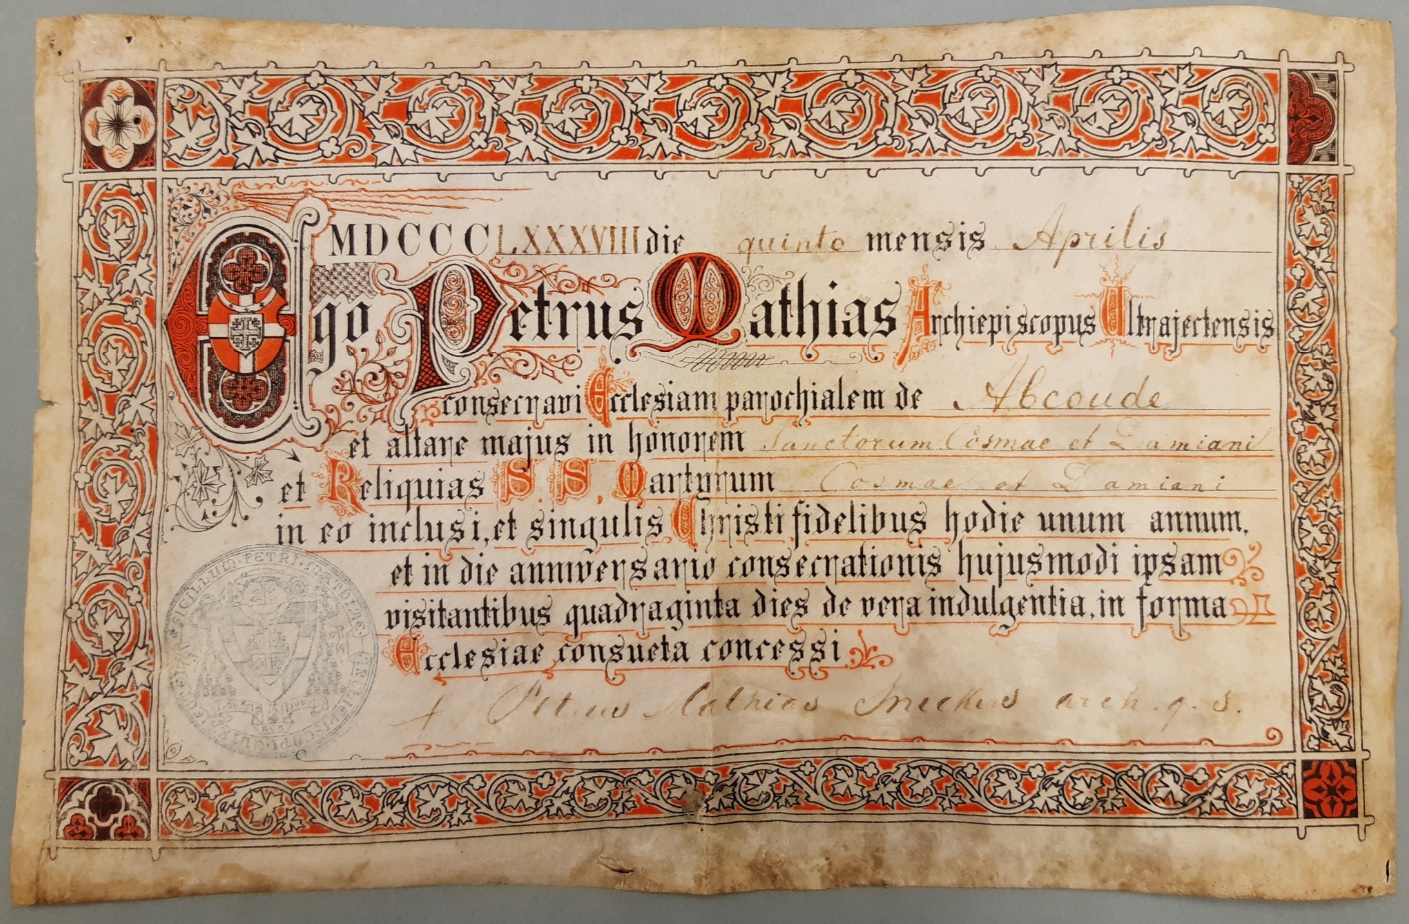 MDCCCLXXXVIII die quinto mensis Aprilis
Ego Petrus Mathias Archiepiscopus Ultrajectensis
consecravi Ecclesiam parochialem de Abcoude
et altare majus in honorem Sanctorum Cosmae et Damiani
et Reliquias S.S. Martyrum Cosmae et Damiani
in eo inclusi, et singulis Christi fidelibus hodie unum annum,
et in die anniversario consecrationis hujusmodi ipsam
visitantibus quadraginta dies de vera indulgentia, in forma
Ecclesiae consueta concessi
SIGILLUM PETRI MATHIAE
+ Petrus Mathias Snickers arch. q. s.